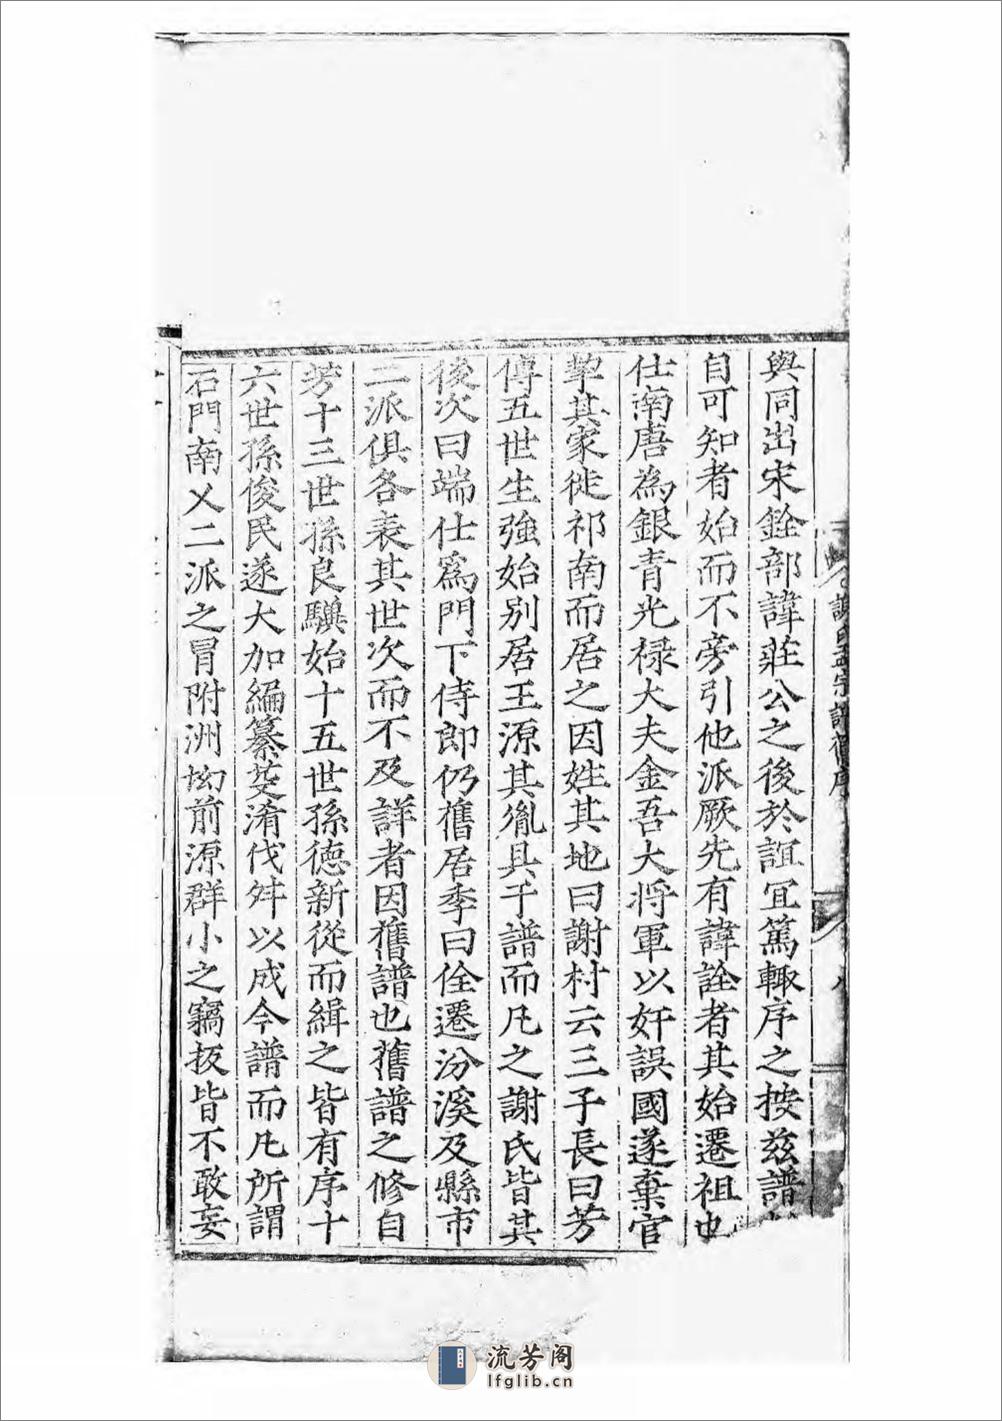 謝氏孟宗譜舊序
與同出宋銓部諱莊公之後於誼宜篤輙序之按兹譜
自可知者始而不旁引他派厥先有諱詮者其始遷祖也
仕南唐為銀青光禄大夫金吾大将軍以奸誤國遂棄官
挈其家徙祁南而居之因姓其地曰謝村云三子長曰芳
傳五世生強始别居王源其胤具于譜而凡之謝氏皆其
後次曰端仕爲門下侍郎仍舊居季曰佺遷汾溪及縣市
二派俱各表其世次而不及詳者因舊譜也舊譜之修自
芳十三世孫良驥始十五世孫德新從而緝之皆有序十
六世孫俊民遂大加編纂芟淆伐舛以成今譜而凡所謂
石門南乂二派之冒附洲坳前源群小之竊扳皆不敢妄
流芳阁
lfglib.cn